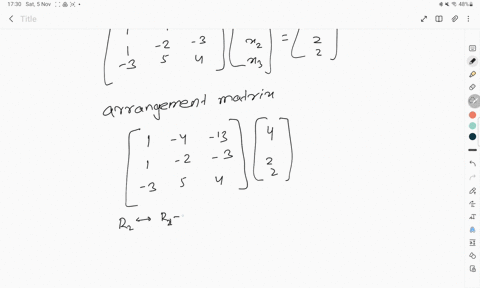 17:30 Sat, 5 Nov
48%
Title
1 -2 -3 x2 = 2
-3 5 4 x3 2
arrangement matrix
1 -4 -13 4
1 -2 -3 2
-3 5 4 2
R2 ↔ R2 -